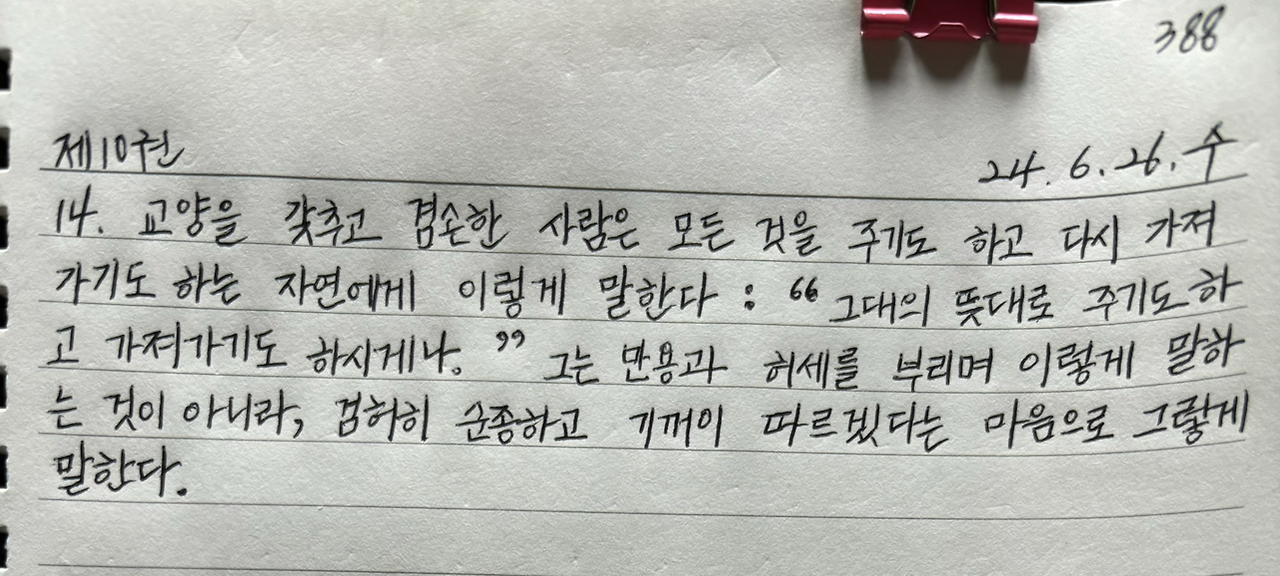 388
제10권
24. 6. 26. 수
14. 교양을 갖추고 겸손한 사람은 모든 것을 주기도 하고 다시 가져
가기도 하는 자연에게 이렇게 말한다 : “그대의 뜻대로 주기도 하
고 가져가기도 하시게나.” 그는 만용과 허세를 부리며 이렇게 말하
는 것이 아니라, 겸허히 순종하고 기꺼이 따르겠다는 마음으로 그렇게
말한다.